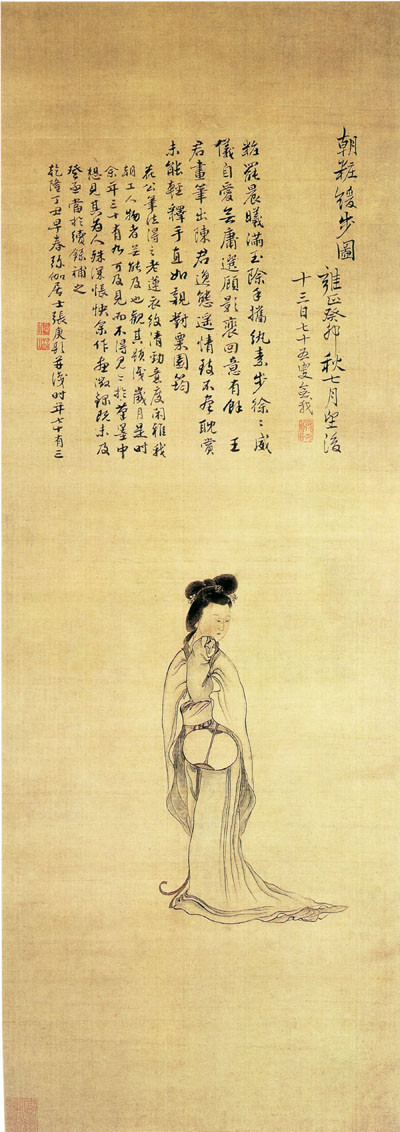 朝粧緩步圖
雍正癸卯秋七月望後
十三日七十五叟無我
粧罷晨曦滿玉除手攜紈素步徐〻威
儀自愛無庸選顧影裵回意有餘 王
君畫筆出陳君逸態遙情致不羣耽賞
未能輕釋手直如親對粟園筠
公筆法得之老蓮衣紋清勁意度閒雅我
朝工人物者莫能及也觀其題識歲月是時
余年三十有九可及見而不得見〻於筆墨中
想見其為人殊深悵怏余作畫徵錄既未及
登亟當於續錄補之
乾隆丁丑早春弥伽居士張庚題并識時年七十有三